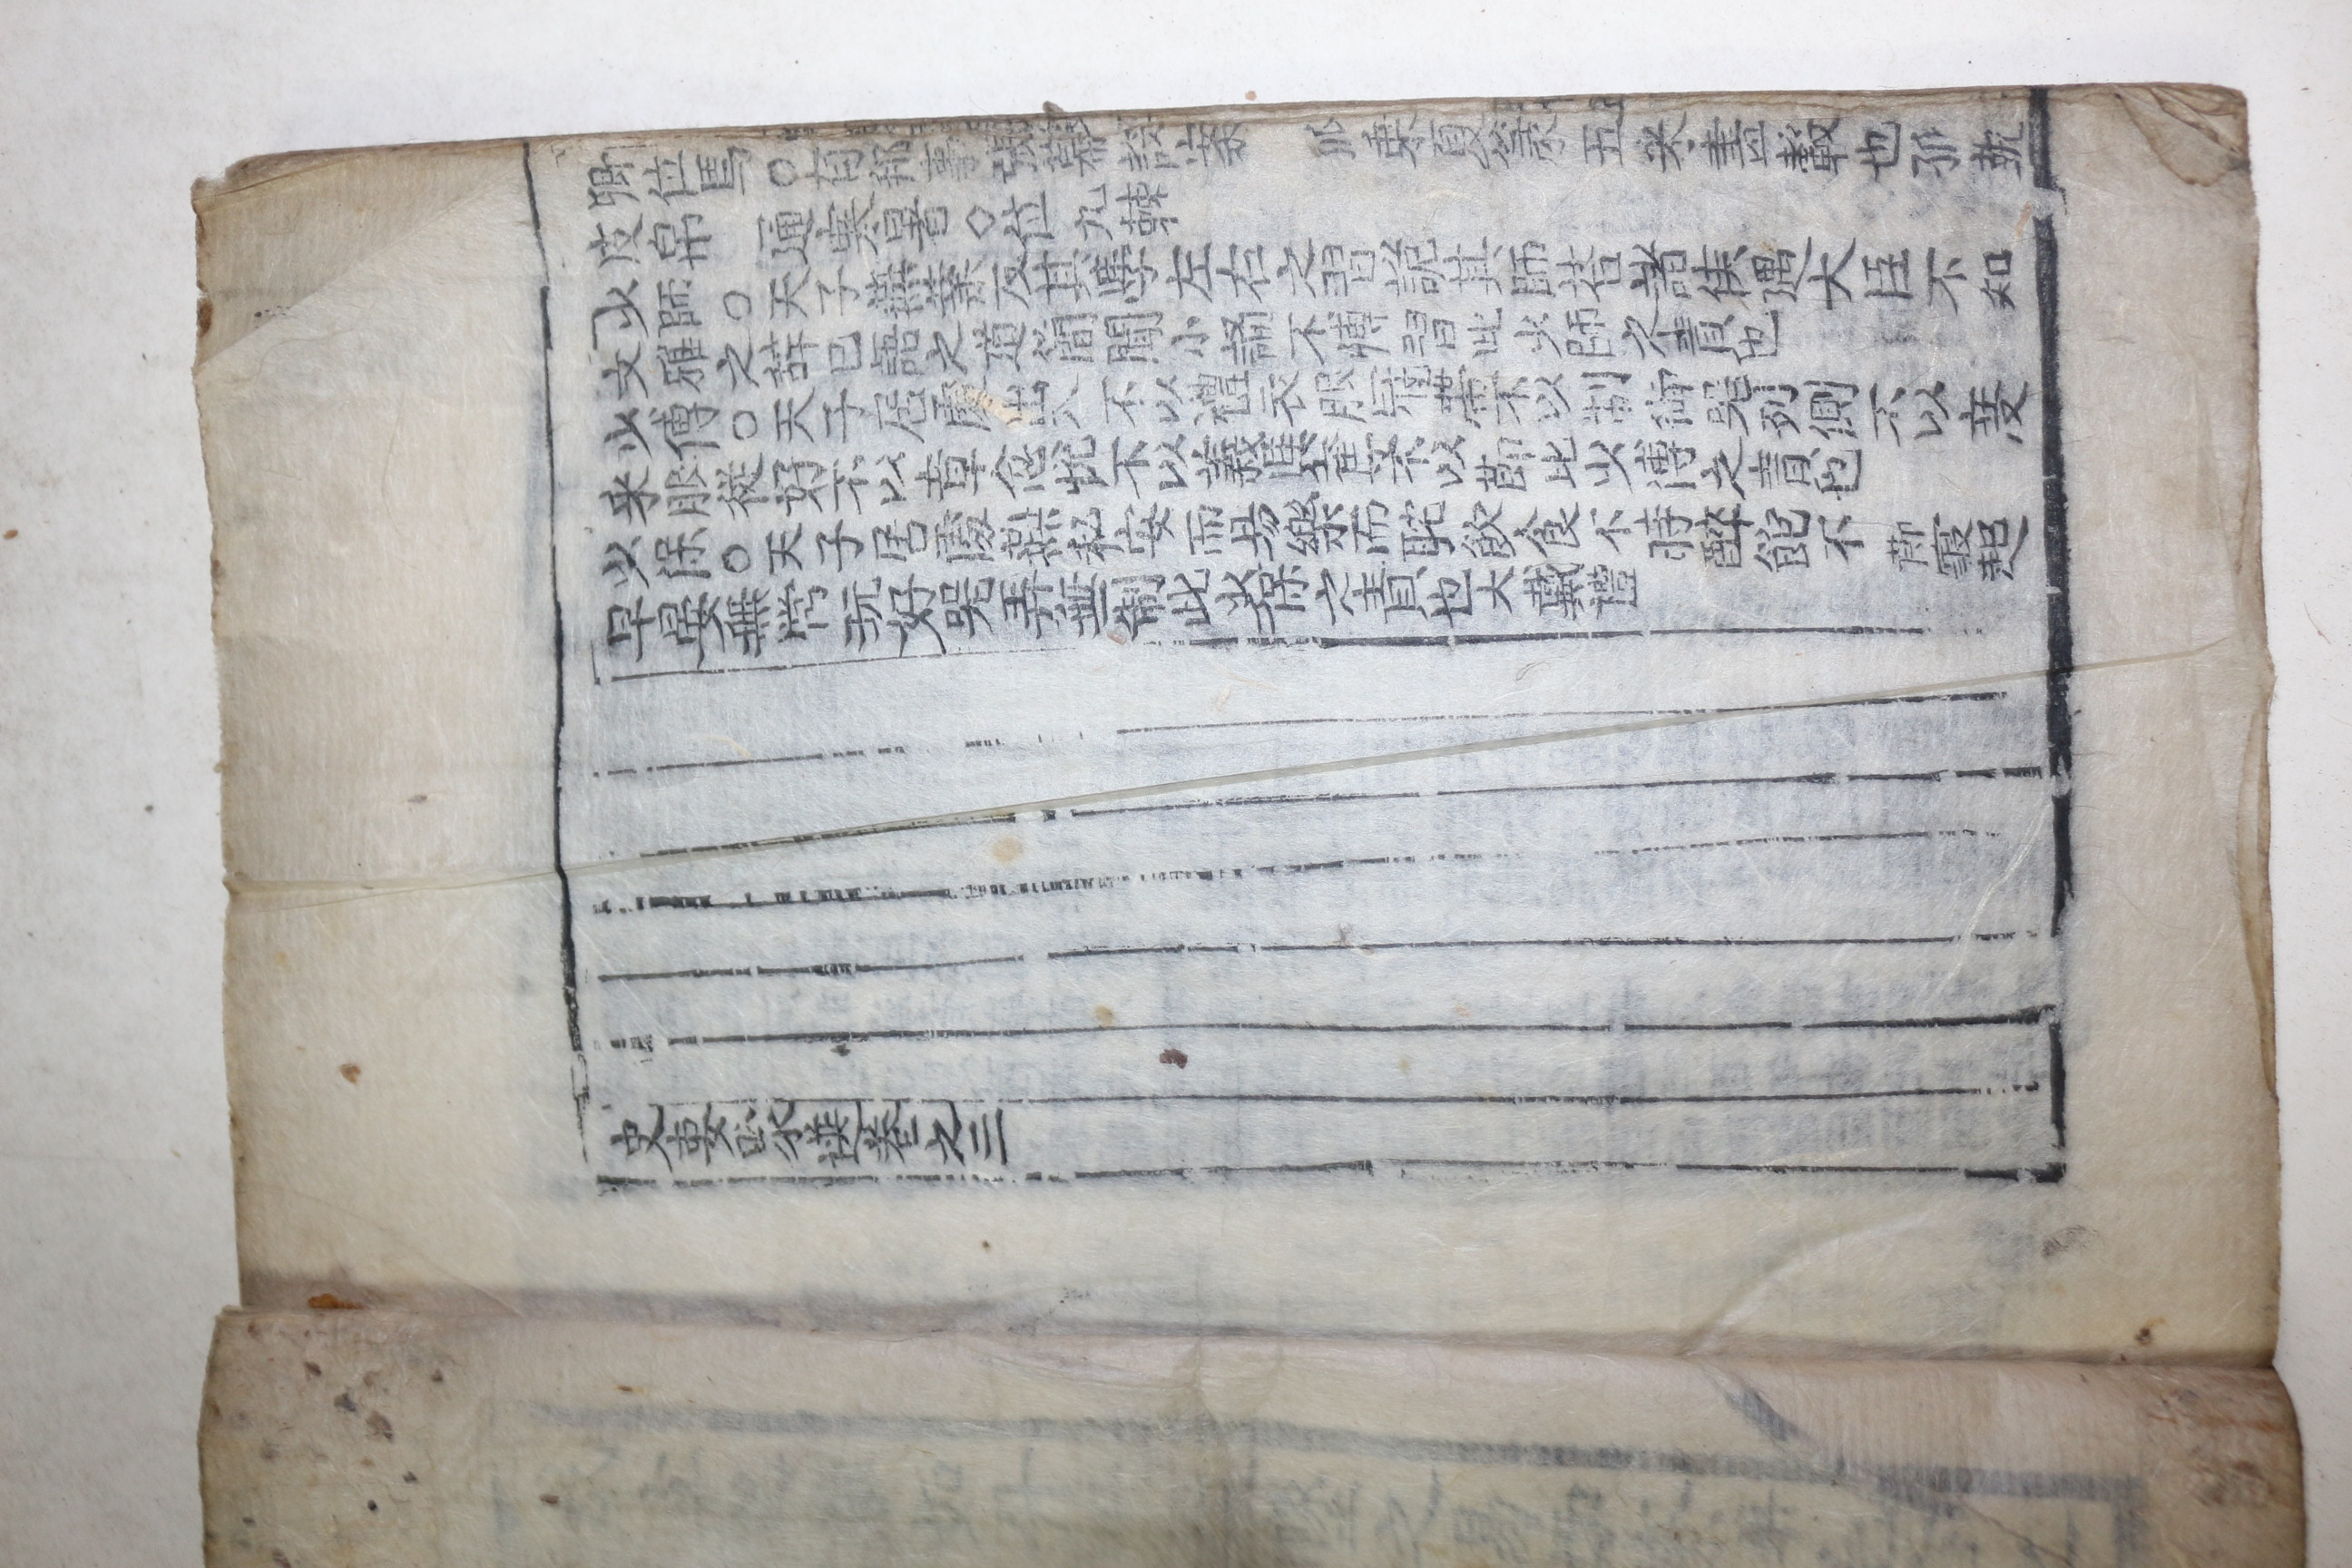 卿位焉○有邦事張幕設案 孤乘夏篆五采畫轂也孤執
皮帛 通寒暑○位九棘
少師○天子燕業反其學左右之習詭其師荅諸侯遇大臣不知
文雅之辞已語之道簡聞小誦不博習此少師之責也
少傅○天子居處出入不以禮衣服冠帶不以制御器列側不以度
采服從好不以章忿悅不以義與奪不以節此少傅之責也
少保○天子居處燕私安而易樂而耽飲食不時醉飽不節寢起
早晏無常玩好器弄無制此少保之責也大戴禮
史要聚選卷之三